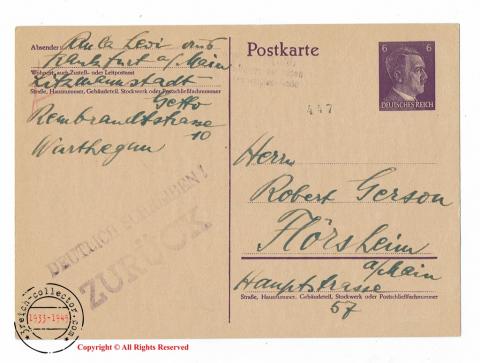 Absender: Paula Levi aus
Frankfurt a/Main
Wohnort, auch Zustell- oder Leitpostamt
Litzmannstadt
Straße, Hausnummer, Gebäudeteil, Stockwerk oder Postschließfachnummer
Getto
Rembrandtstrasse
10
Warthegau
DEUTLICH SCHREIBEN!
ZURÜCK
Postkarte
6 6
DEUTSCHES REICH
447
Herrn
Robert Gerson
Flörsheim
a/Main
Hauptstrasse
Straße, Hausnummer, Gebäudeteil, Stockwerk oder Postschließfachnummer
57
3reich-collector.com
1933-1945
Copyright © All Rights Reserved